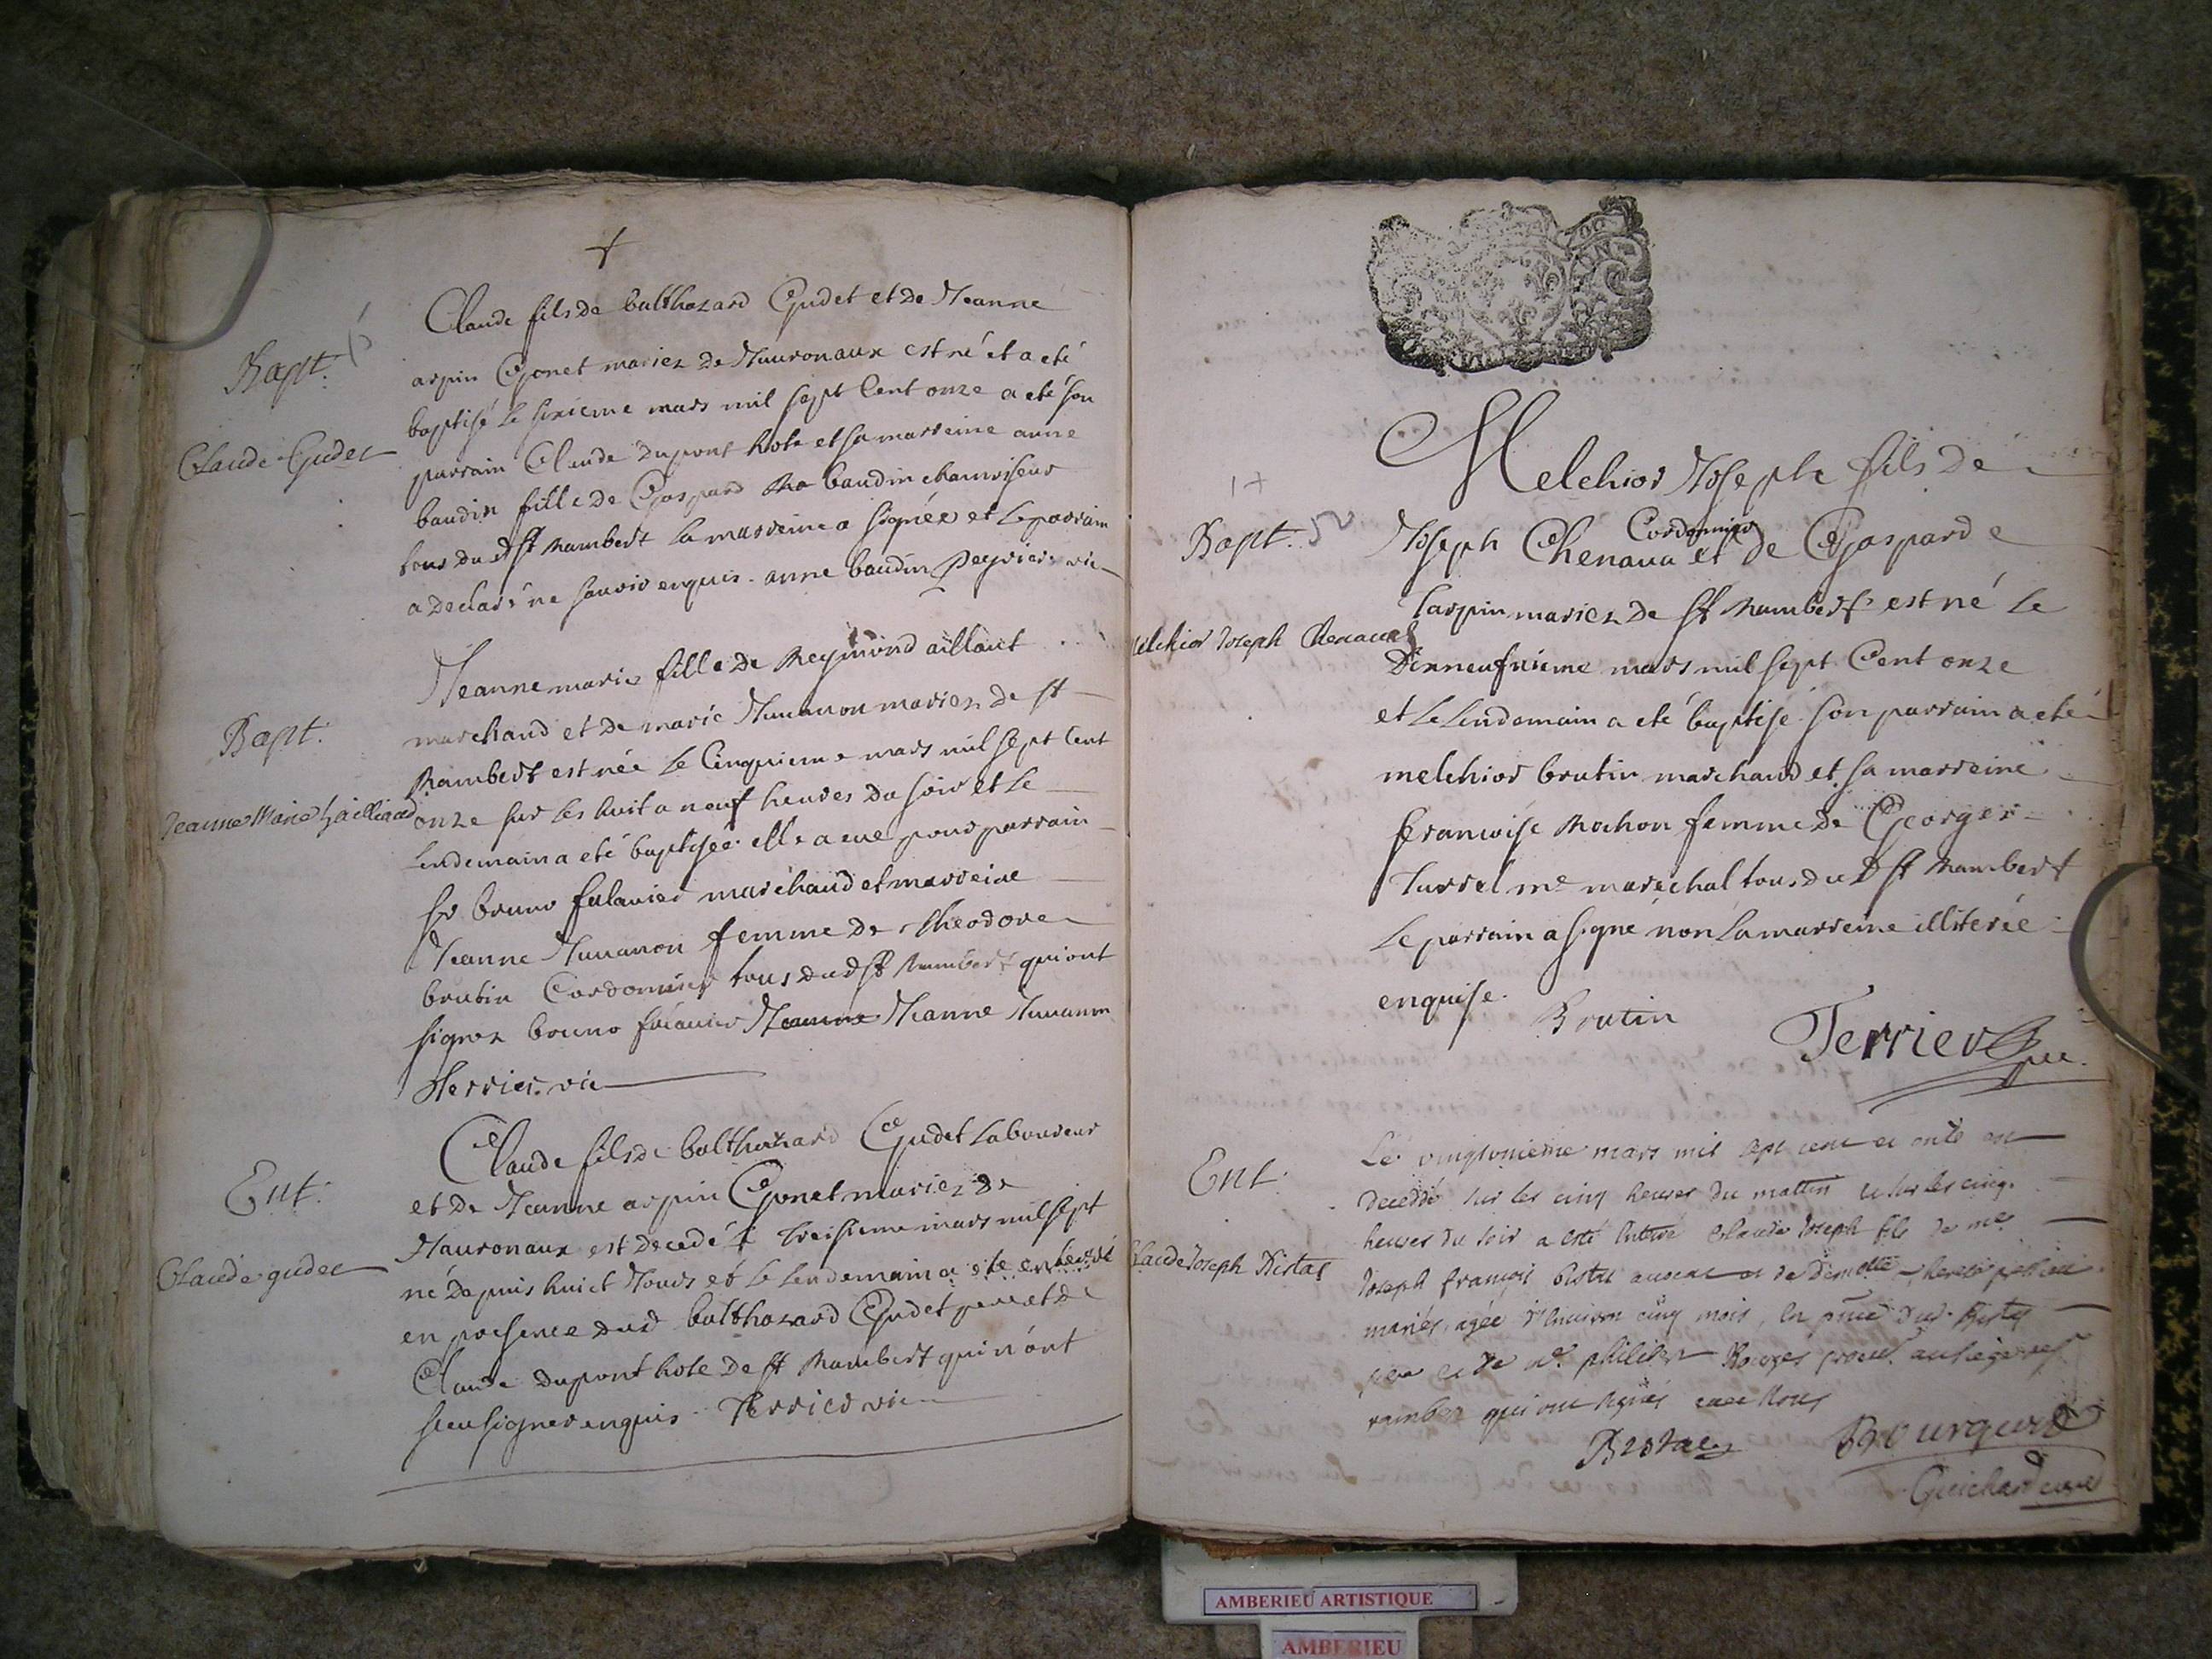 Bapt.
Claude Gudet
Claude fils de balthazard Gudet et de Jeanne
arpin Gonet mariez de est né et a eté
baptisé le sixieme mars mil sept Cent onze a eté son
parrain Claude dupont hote et sa marreine anne
baudin fille de Gaspard baudin
tous du d st Rambert la marreine a signée et le parrain
a declaré ne sauoir enquis. anne baudin vic
Bapt.
Jeanne Marie
Jeanne marie fille de Reymond
marchand et de marie Juuanon mariez de st
Rambert est née le Cinquieme mars mil sept Cent
onze sur les huit a neuf heures du soir et le
lendemain a eté baptisée elle a eue pour parrain
sr bruno marchand et marreine
Jeanne Juuanon femme de theodore
brutin Cordonnier tous dud st Rambert qui ont
signez bruno Jeanne Juuanon
Terrier vic
Ent.
Claude gudet
Claude fils de balthazard Gudet laboureur
et de Jeanne arpin Gonet mariez de
est decedé le treisieme mars mil sept
né depuis huict Jours et le lendemain a eté enterré
en presence dud balthazard Gudet pere et de
Claude dupont hote de st Rambert qui n'ont
sceu signer enquis Terrier vic
17
Bapt.
Melchior Joseph
Melchior Joseph fils de
Cordonnier
Joseph Chenaua et de Gasparde
tarpin mariez de st Rambert est né le
dixneufuieme mars mil sept Cent onze
et le lendemain a eté baptisé son parrain a eté
melchior brutin marchand et sa marreine
francoise Rochon femme de George
turrel me marechal tous du d st Rambert
le parrain a signé non la marreine illiterée
enquise.
Brutin
Terrier
Ent.
Claude Joseph Distat
Le vingtunieme mars mil sept cent et onze est
decedé sur les cinq heures du mattin et sur les cinq
heures du soir a esté enterré Claude Joseph fils de me
Joseph françois auocat et de
mariés, agée d'enuiron cinq mois, en
pere et de me philibert
rambert qui ont signés auec Nous
Guichard curé
AMBERIEU ARTISTIQUE
AMBERIEU